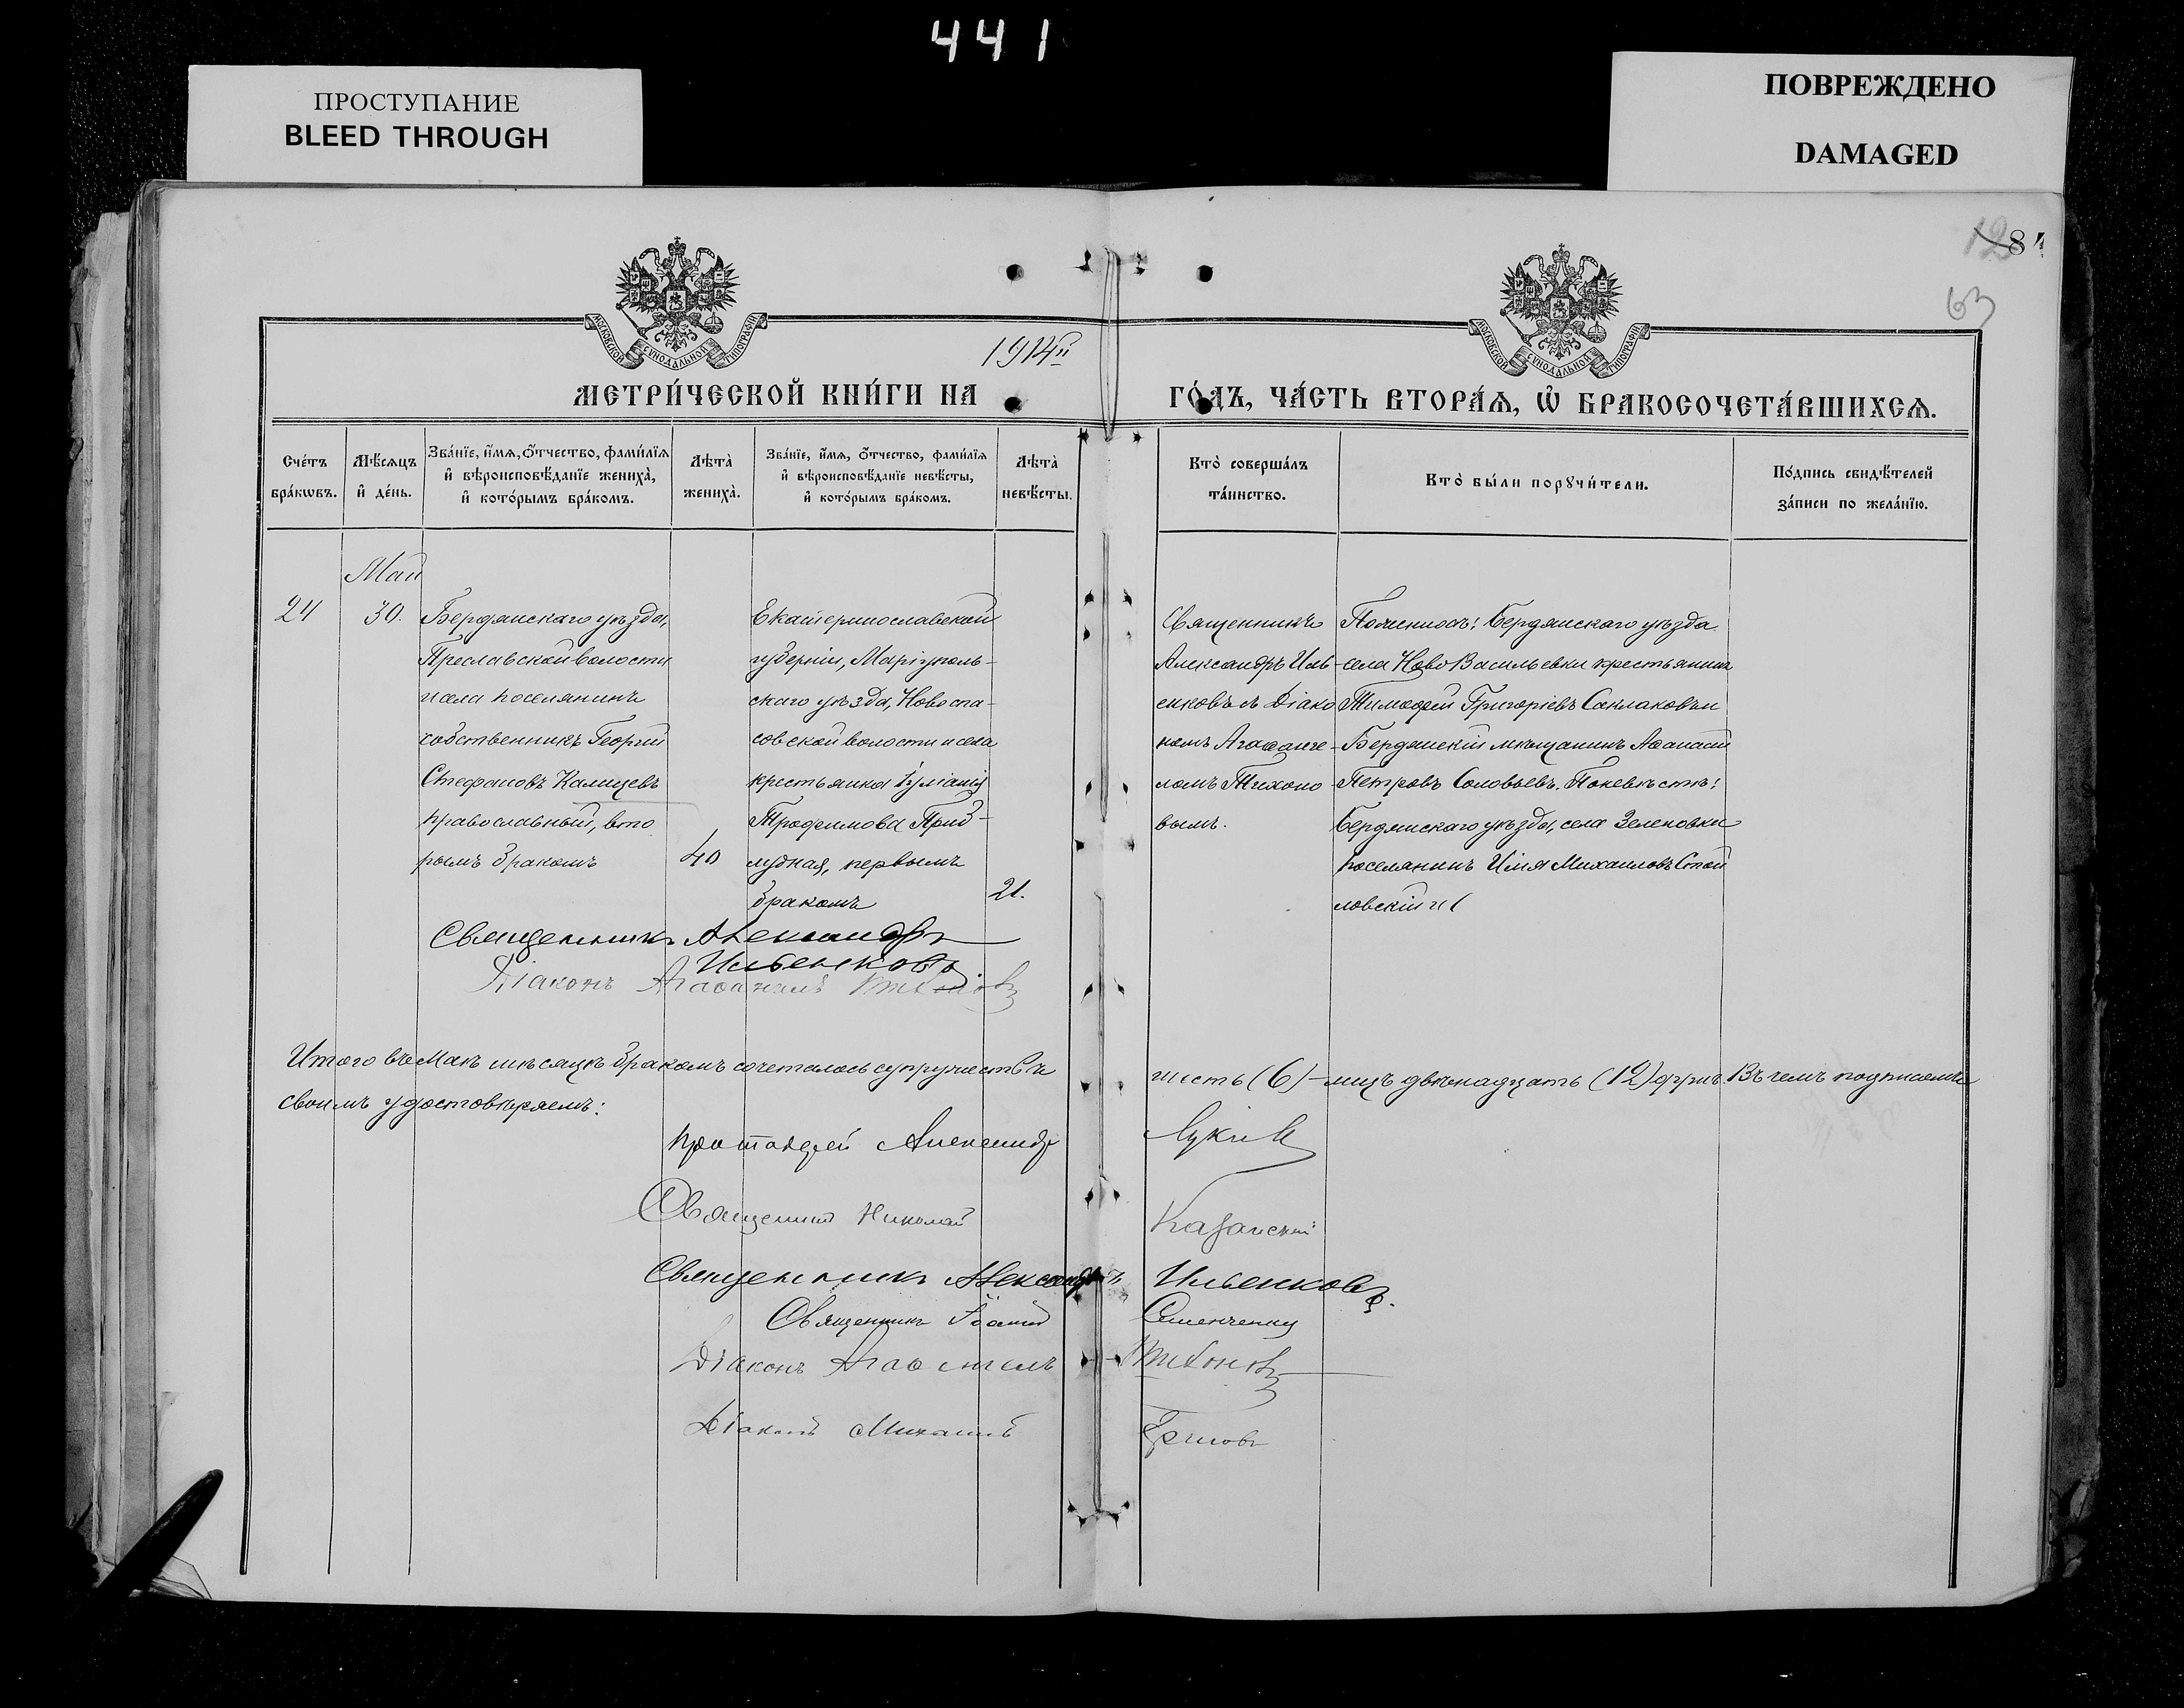 441
ПРОСТУПАНИЕ
BLEED THROUGH
ПОВРЕЖДЕНО
DAMAGED
128
63
МОСКОВСКОЙ СѴНОДАЛЬНОЙ ТИПОГРАФІИ
МОСКОВСКОЙ СѴНОДАЛЬНОЙ ТИПОГРАФІИ
МЕТРИ́ЧЕСКОЙ КНИ́ГИ НА 1914й ГО́ДЪ, ЧА́СТЬ ВТОРА́Ѧ, Ѽ БРАКОСОЧЕТА́ВШИХСѦ.
Сче́тъ
бра́кѡвъ.
Мѣ́сѧцъ
и҆ де́нь.
Зва́нїе, и҆́мѧ, ѻ҆́тчество, фами́лїѧ
и҆ вѣроисповѣ́данїе жениха̀,
и҆ кото́рымъ бра́комъ.
Лѣта̀
жениха̀.
Зва́нїе, и҆́мѧ, ѻ҆́тчество, фами́лїѧ
и҆ вѣроисповѣ́данїе невѣ́сты,
и҆ кото́рымъ бра́комъ.
Лѣта̀
невѣ́сты.
Кто̀ соверша́лъ
та́инство.
Кто̀ бы́ли порꙋчи́тели.
По́дпись свидѣ́телей
за́писи по жела́нїю.
Май
24
30.
Бердянскаго уѣзда,
Преславской волости
и села поселянинъ
собственникъ Георгій
Стефановъ Калицевъ
православный, вто
рымъ бракомъ
40
Екатеринославской
губерніи, Маріуполь-
скаго уѣзда, Новоспа-
совской волости и села
крестьянка Іуліанія
Трофимова Приб-
лудная, первымъ
бракомъ
21.
Священникъ
Александръ Иль-
енковъ съ Діако
номъ Агафанге-
ломъ Тихоно
вымъ.
Пожениху: Бердянскаго уѣзда
села НовоВасильевки крестьянинъ
Тимофей Григоріевъ и
Бердянскій мѣщанинъ Афанасій
Петровъ Соловьевъ. Поневѣстѣ:
Бердянскаго уѣзда, села Зеленовки
поселянинъ Илія Михаиловъ Стой
ловскій и
Священникъ Александръ
Ильенковъ
Діаконъ Агафангелъ Тихоновъ
Итого въ Маѣ мѣсяцѣ бракомъ сочеталось супружествъ шесть (6) – лицъ двѣнадцать (12) душъ. Въ чемъ подписомъ
своимъ удостовѣряемъ:
Протоіерей Александръ
Священникъ Николай Казанскій
Священникъ Александръ Ильенковъ.
Священникъ Іоаннъ Семенченко
Діаконъ Агафангелъ Тихоновъ
Діаконъ Михаилъ